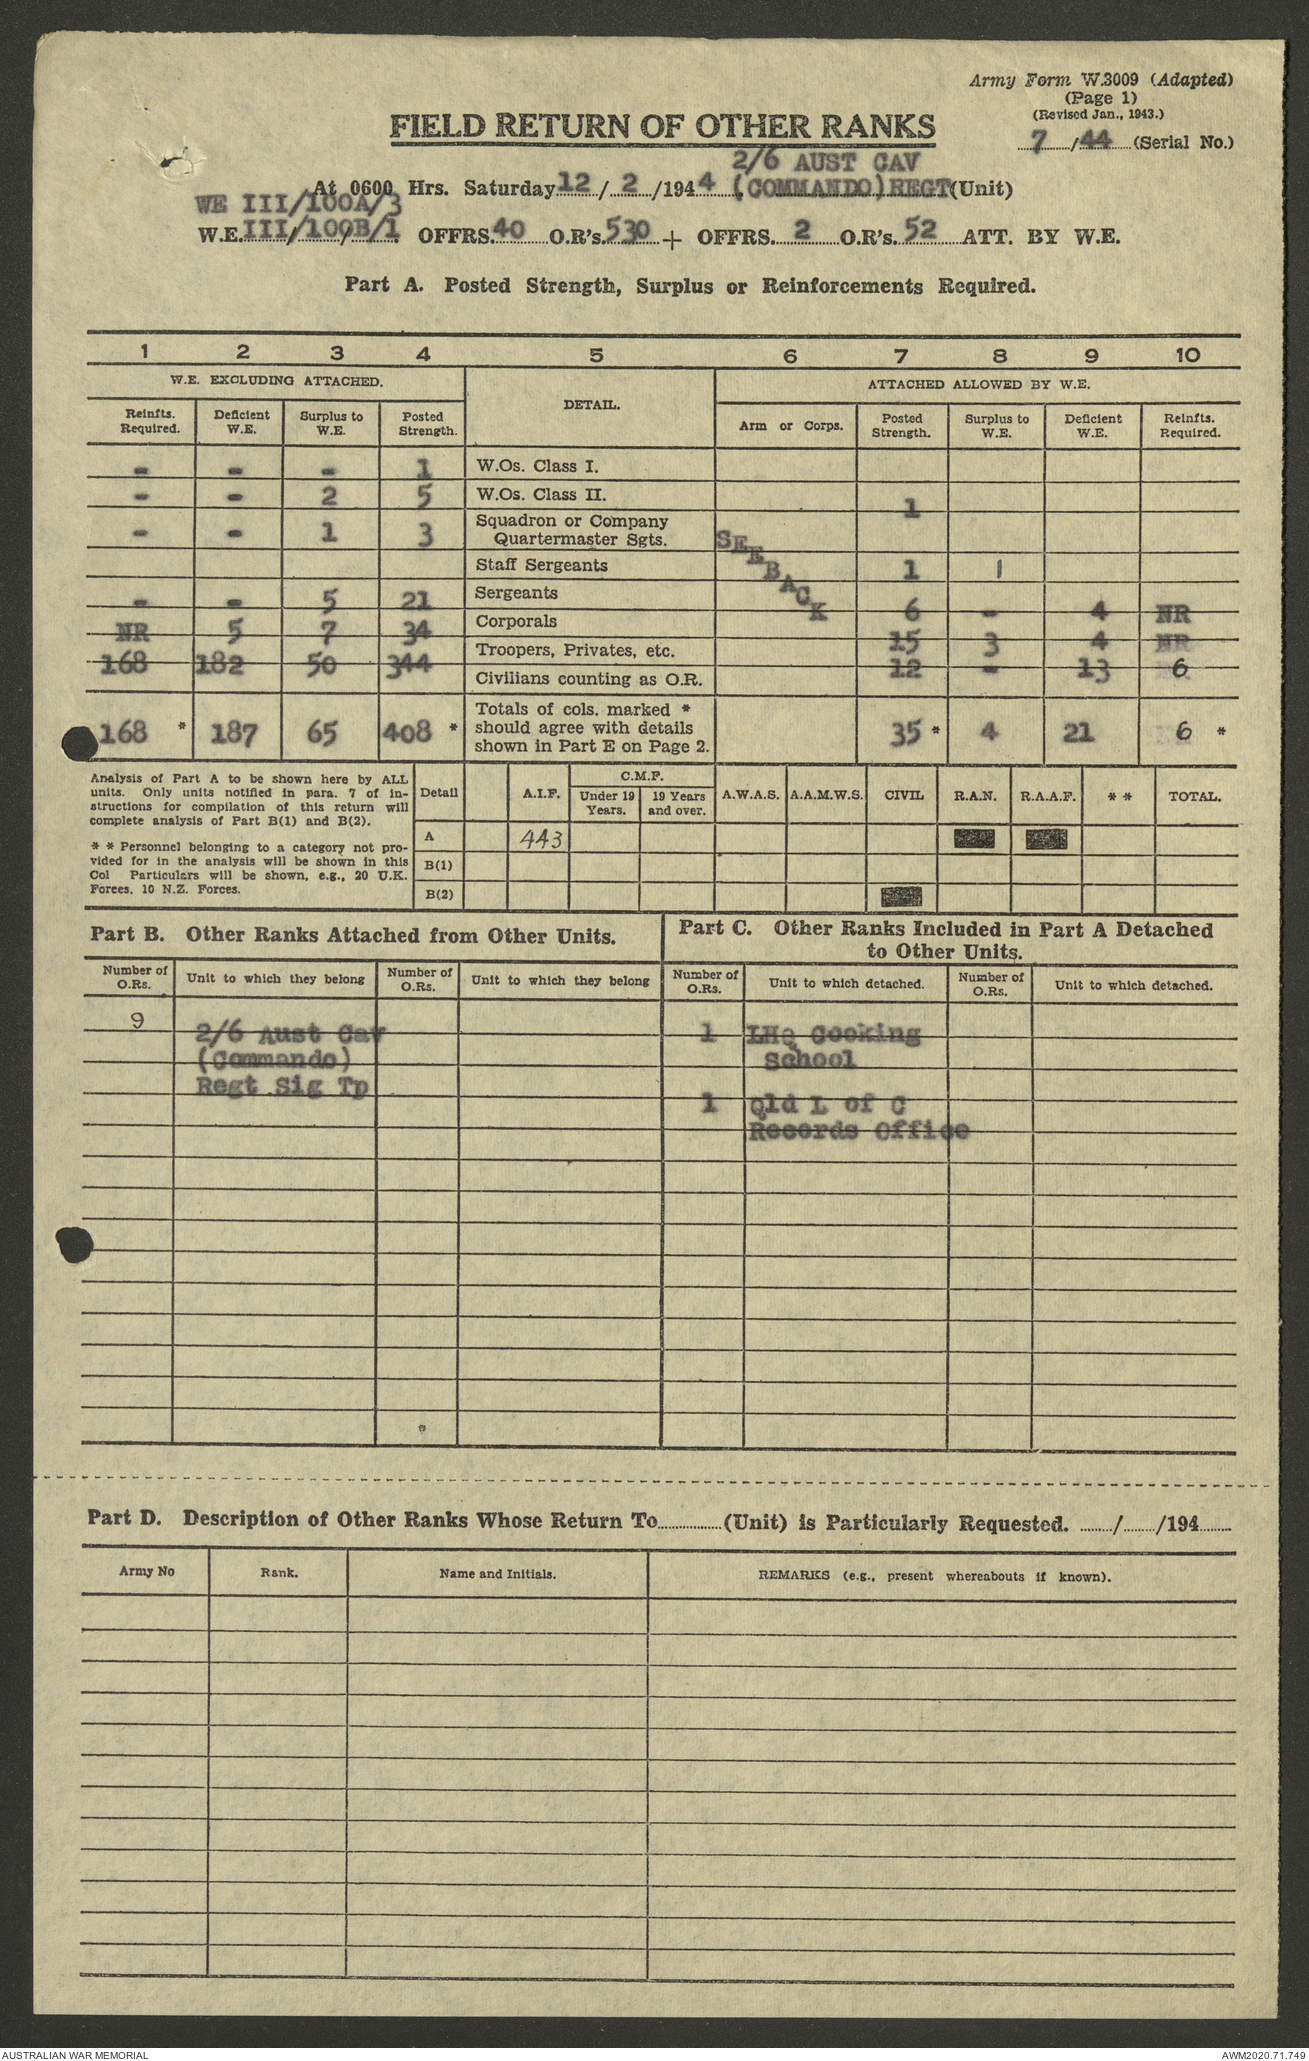 Army Form W.3009 (Adapted)
(Page 1)
(Revised Jan., 1943.)
FIELD RETURN OF OTHER RANKS
7/44 (Serial No.)
2/6 AUST CAV
At 0600 Hrs. Saturday 12/2/1944 (COMMANDO) REGT (Unit)
WE III/100A/3
W.E. III/100B/1 OFFRS. 40 O.R's. 530 + OFFRS. 2 O.R's. 52 ATT. BY W.E.
Part A. Posted Strength, Surplus or Reinforcements Required.
1 2 3 4 5 6 7 8 9 10
W.E. EXCLUDING ATTACHED. DETAIL. ATTACHED ALLOWED BY W.E.
Reinfts. Required. Deficient W.E. Surplus to W.E. Posted Strength. Arm or Corps. Posted Strength. Surplus to W.E. Deficient W.E. Reinfts. Required.
- - - 1 W.Os. Class I.
- - 2 5 W.Os. Class II. 1
- - 1 3 Squadron or Company Quartermaster Sgts. SEE BACK
Staff Sergeants 1 1
- - 5 21 Sergeants 6 - 4 NR
NR 5 7 34 Corporals 15 3 4 NR
168 182 50 344 Troopers, Privates, etc. 12 - 13 6
Civilians counting as O.R.
168 * 187 65 408 * Totals of cols. marked * should agree with details shown in Part E on Page 2. 35 * 4 21 6 *
Analysis of Part A to be shown here by ALL
units. Only units notified in para. 7 of in-
structions for compilation of this return will
complete analysis of Part B(1) and B(2).
* * Personnel belonging to a category not pro-
vided for in the analysis will be shown in this
Col Particulars will be shown, e.g., 20 U.K.
Forces, 10 N.Z. Forces.
Detail A.I.F. C.M.F. Under 19 Years. 19 Years and over. A.W.A.S. A.A.M.W.S. CIVIL R.A.N. R.A.A.F. * * TOTAL.
A 443
B(1)
B(2)
Part B. Other Ranks Attached from Other Units.
Part C. Other Ranks Included in Part A Detached
to Other Units.
Number of O.Rs. Unit to which they belong Number of O.Rs. Unit to which they belong Number of O.Rs. Unit to which detached. Number of O.Rs. Unit to which detached.
9 2/6 Aust Cav
(Commando)
Regt Sig Tp
1 LHQ Cooking
School
1 Qld L of C
Records Office
Part D. Description of Other Ranks Whose Return To (Unit) is Particularly Requested. / /194
Army No Rank. Name and Initials. REMARKS (e.g., present whereabouts if known).
AUSTRALIAN WAR MEMORIAL
AWM2020.71.749